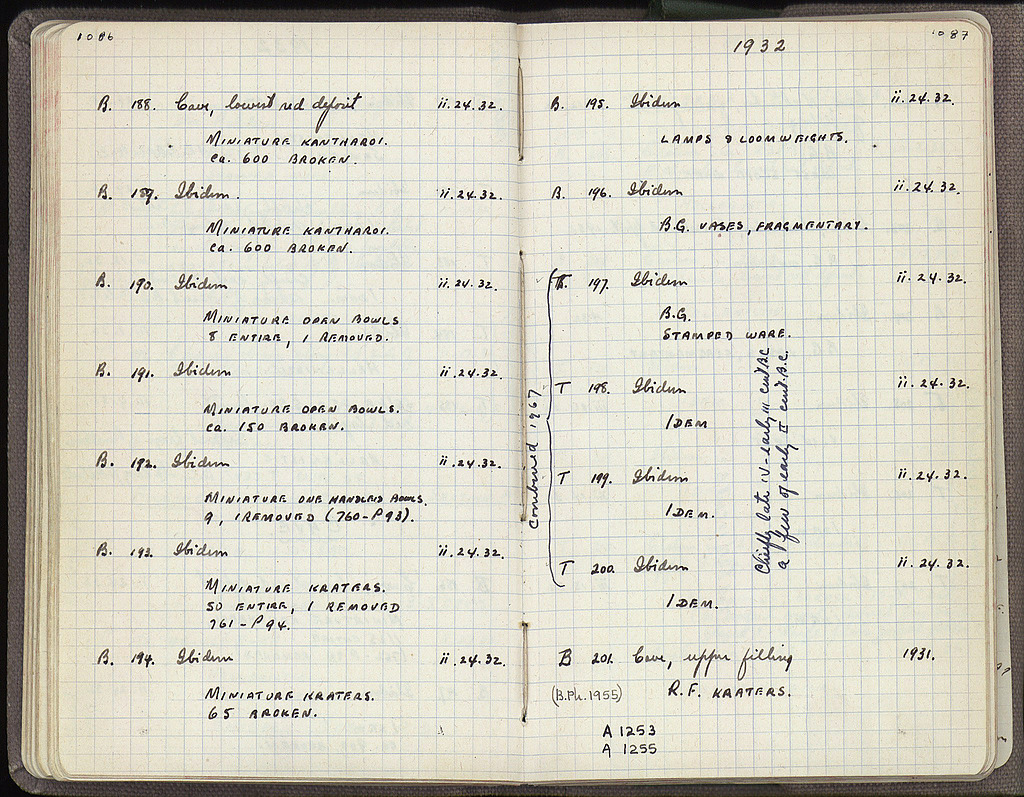 1086
B. 188. Cave, lowest red deposit ii.24.32.
MINIATURE KANTHAROI.
ca. 600 BROKEN.
B. 189. Ibidem. ii.24.32.
MINIATURE KANTHAROI.
ca. 600 BROKEN.
B. 190. Ibidem ii.24.32.
MINIATURE OPEN BOWLS
8 ENTIRE, 1 REMOVED.
B. 191. Ibidem ii.24.32.
MINIATURE OPEN BOWLS.
ca. 150 BROKEN.
B. 192. Ibidem ii.24.32.
MINIATURE ONE HANDLED BOWLS.
9, 1 REMOVED (760-P93).
B. 193. Ibidem ii.24.32.
MINIATURE KRATERS.
50 ENTIRE, 1 REMOVED
761-P94.
B. 194. Ibidem ii.24.32.
MINIATURE KRATERS.
65 BROKEN.
1087
1932
B. 195. Ibidem ii.24.32.
LAMPS & LOOMWEIGHTS.
B. 196. Ibidem ii.24.32.
B.G. VASES, FRAGMENTARY.
T. 197. Ibidem ii.24.32.
B.G.
STAMPED WARE.
T 198. Ibidem ii.24.32.
IDEM
T 199. Ibidem ii.24.32.
IDEM.
T 200. Ibidem ii.24.32.
IDEM.
Combined 1967
Chiefly late IV - early III cent B.C.
a few of early II cent. B.C.
B 201. Cave, upper filling 1931.
(B.Ph. 1955) R.F. KRATERS.
A 1253
A 1255